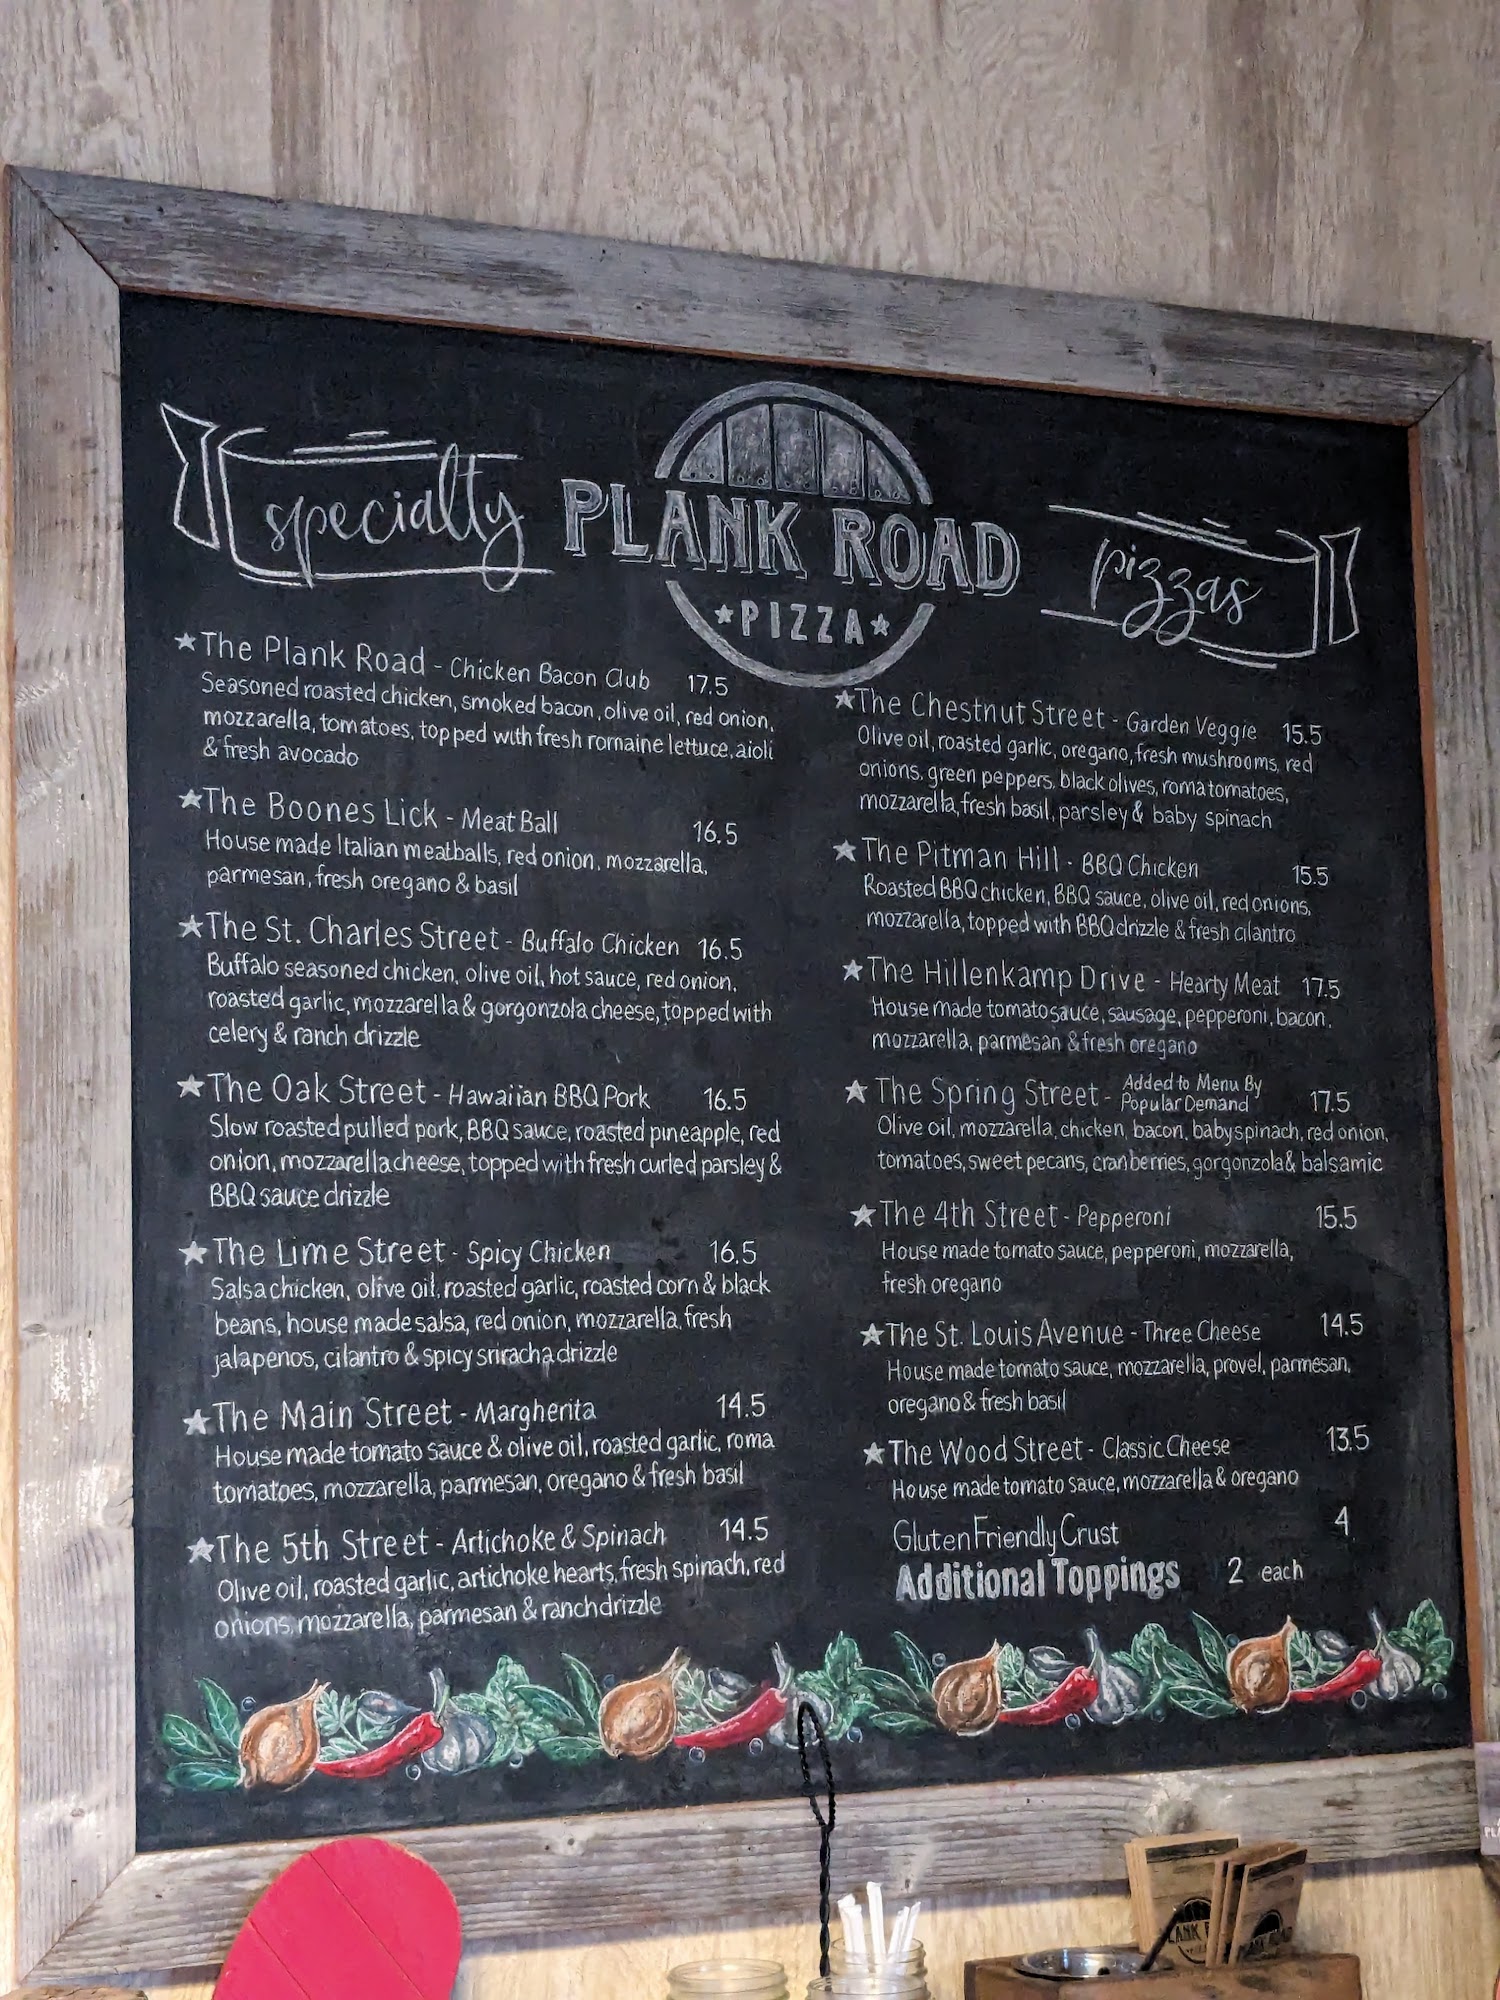 specialty
PLANK ROAD
PIZZA
pizzas
The Plank Road - Chicken Bacon Club 17.5
Seasoned roasted chicken, smoked bacon, olive oil, red onion,
mozzarella, tomatoes, topped with fresh romaine lettuce, aioli
& fresh avocado
The Boones Lick - Meat Ball 16.5
House made Italian meatballs, red onion, mozzarella,
parmesan, fresh oregano & basil
The St. Charles Street - Buffalo Chicken 16.5
Buffalo seasoned chicken, olive oil, hot sauce, red onion,
roasted garlic, mozzarella & gorgonzola cheese, topped with
celery & ranch drizzle
The Oak Street - Hawaiian BBQ Pork 16.5
Slow roasted pulled pork, BBQ sauce, roasted pineapple, red
onion, mozzarella cheese, topped with fresh curled parsley &
BBQ sauce drizzle
The Lime Street - Spicy Chicken 16.5
Salsa chicken, olive oil, roasted garlic, roasted corn & black
beans, house made salsa, red onion, mozzarella, fresh
jalapenos, cilantro & spicy sriracha drizzle
The Main Street - Margherita 14.5
House made tomato sauce & olive oil, roasted garlic, roma
tomatoes, mozzarella, parmesan, oregano & fresh basil
The 5th Street - Artichoke & Spinach 14.5
Olive oil, roasted garlic, artichoke hearts, fresh spinach, red
onions, mozzarella, parmesan & ranch drizzle
The Chestnut Street - Garden Veggie 15.5
Olive oil, roasted garlic, oregano, fresh mushrooms, red
onions, green peppers, black olives, roma tomatoes,
mozzarella, fresh basil, parsley & baby spinach
The Pitman Hill - BBQ Chicken 15.5
Roasted BBQ chicken, BBQ sauce, olive oil, red onions,
mozzarella, topped with BBQ drizzle & fresh cilantro
The Hillenkamp Drive - Hearty Meat 17.5
House made tomato sauce, sausage, pepperoni, bacon,
mozzarella, parmesan & fresh oregano
The Spring Street - Added to Menu By
Popular Demand 17.5
Olive oil, mozzarella, chicken, bacon, baby spinach, red onion,
tomatoes, sweet pecans, cranberries, gorgonzola & balsamic
The 4th Street - Pepperoni 15.5
House made tomato sauce, pepperoni, mozzarella,
fresh oregano
The St. Louis Avenue - Three Cheese 14.5
House made tomato sauce, mozzarella, provel, parmesan,
oregano & fresh basil
The Wood Street - Classic Cheese 13.5
House made tomato sauce, mozzarella & oregano
Gluten Friendly Crust 4
Additional Toppings 2 each